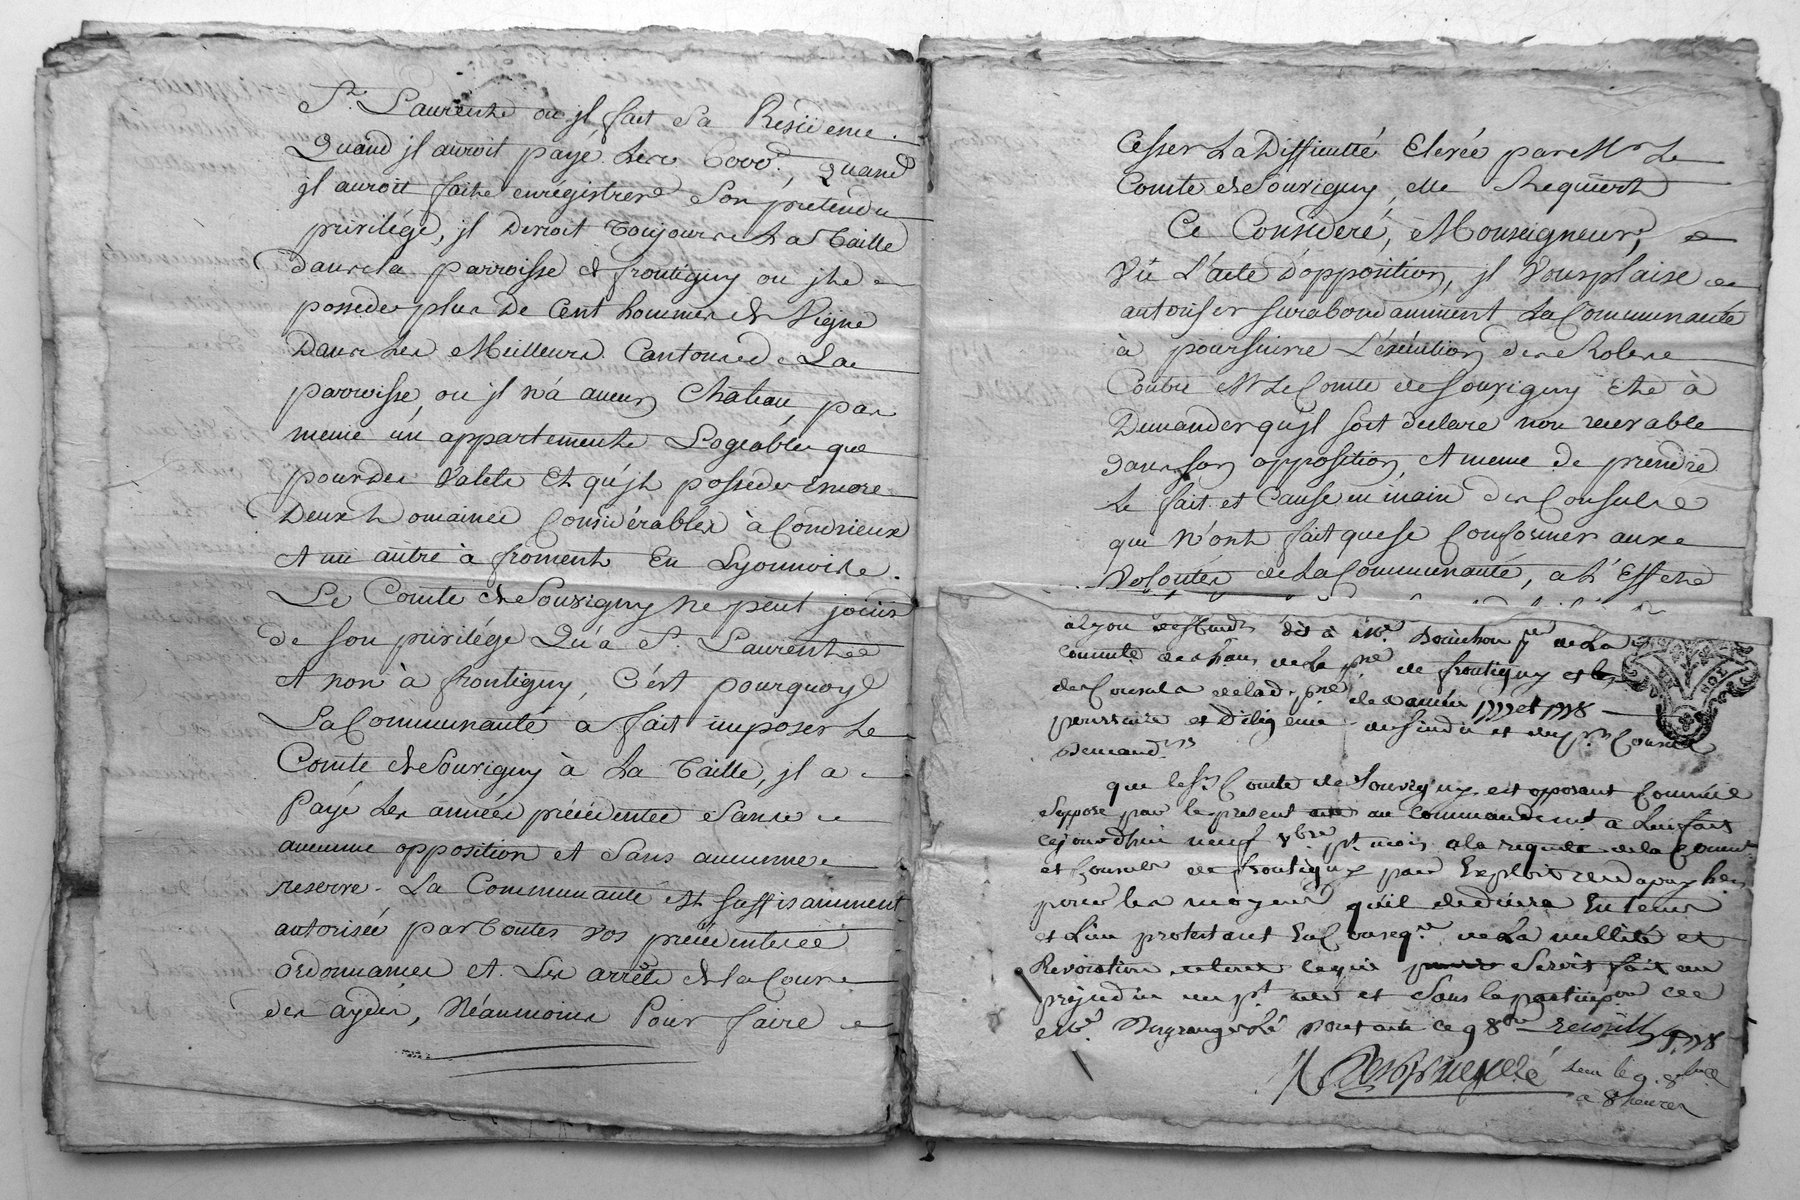 St. Laurent ou jl fait sa Résidence.
Quand jl auroit payé les 6000#, quand
jl auroit fait enrégistrer son pretendu
privilége, jl devroit toujours la taille
dans la parroisse de frontigny ou jl
possede plus de Cent hommes de Vigne
dans les Meilleurs Cantons de La
parroisse, ou jl n'á aucun Chateau, pas
meme un appartement Logeable que
pour des valets Et qu'jl possede encore
Deux Domaines Considérables à Condrieux
et un autre à froment En Lyonnois.
Le Comte de Souvigny ne peut jouir
de son privilége Qu'a St. Laurent
et non à frontigny, C'est pourquoy
La Communauté a fait imposer Le
Comte de Souvigny à La Taille, jl a
Payé les années précédentes Sans
aucune opposition et Sans aucune
reserve. La Communauté est suffisamment
autorisée par toutes vos précédentes
ordonnances et Les arrêts de la Cour
des aydes, Néanmoins Pour faire
Cesser La Difficulté Elevée par Mr. Le
Comte de Souvigny, elle Requiert
Ce Consideré, Monseigneur,
Vû L'acte d'opposition, jl Vous plaise
autoriser surabondamment La Communauté
à poursuivre L'exécution des Roles
Contre Mr. Le Comte de Souvigny et à
Demander qu'jl soit declaré non recevable
dans son opposition, et meme de prendre
le fait et Cause en main des Consuls
qui n'ont fait que se Conformer aux
Volontés de La Communauté, a L'Effet
a lyon deffend dit à Me. de La
Commté. des hans de la pse de frontigny et les
de Consuls de lad. pse de l'année 1777 et 1778
poursuitte et Diligence du sindic et des prs Consuls
Demandrs
que le sr. Comte de Souvigny est opposant Comme il
s'oppose par le present acte au Commandement a Lui fait
cejourdhui neuf 8bre. pt. mois a la requete de la Commté
et Consuls de frontigny par Exploit
pour les moyens qu'il deduira En tems
et Lieu protestant En Conseqce. de La nullité et
Revocation de tout ce qui Seroit fait au
prejudice du pt. acte et Sans la participon de
Me. Desgranges dont acte ce 9 8bre 1778
Desgranges
le 9. 8bre
a 8 heures